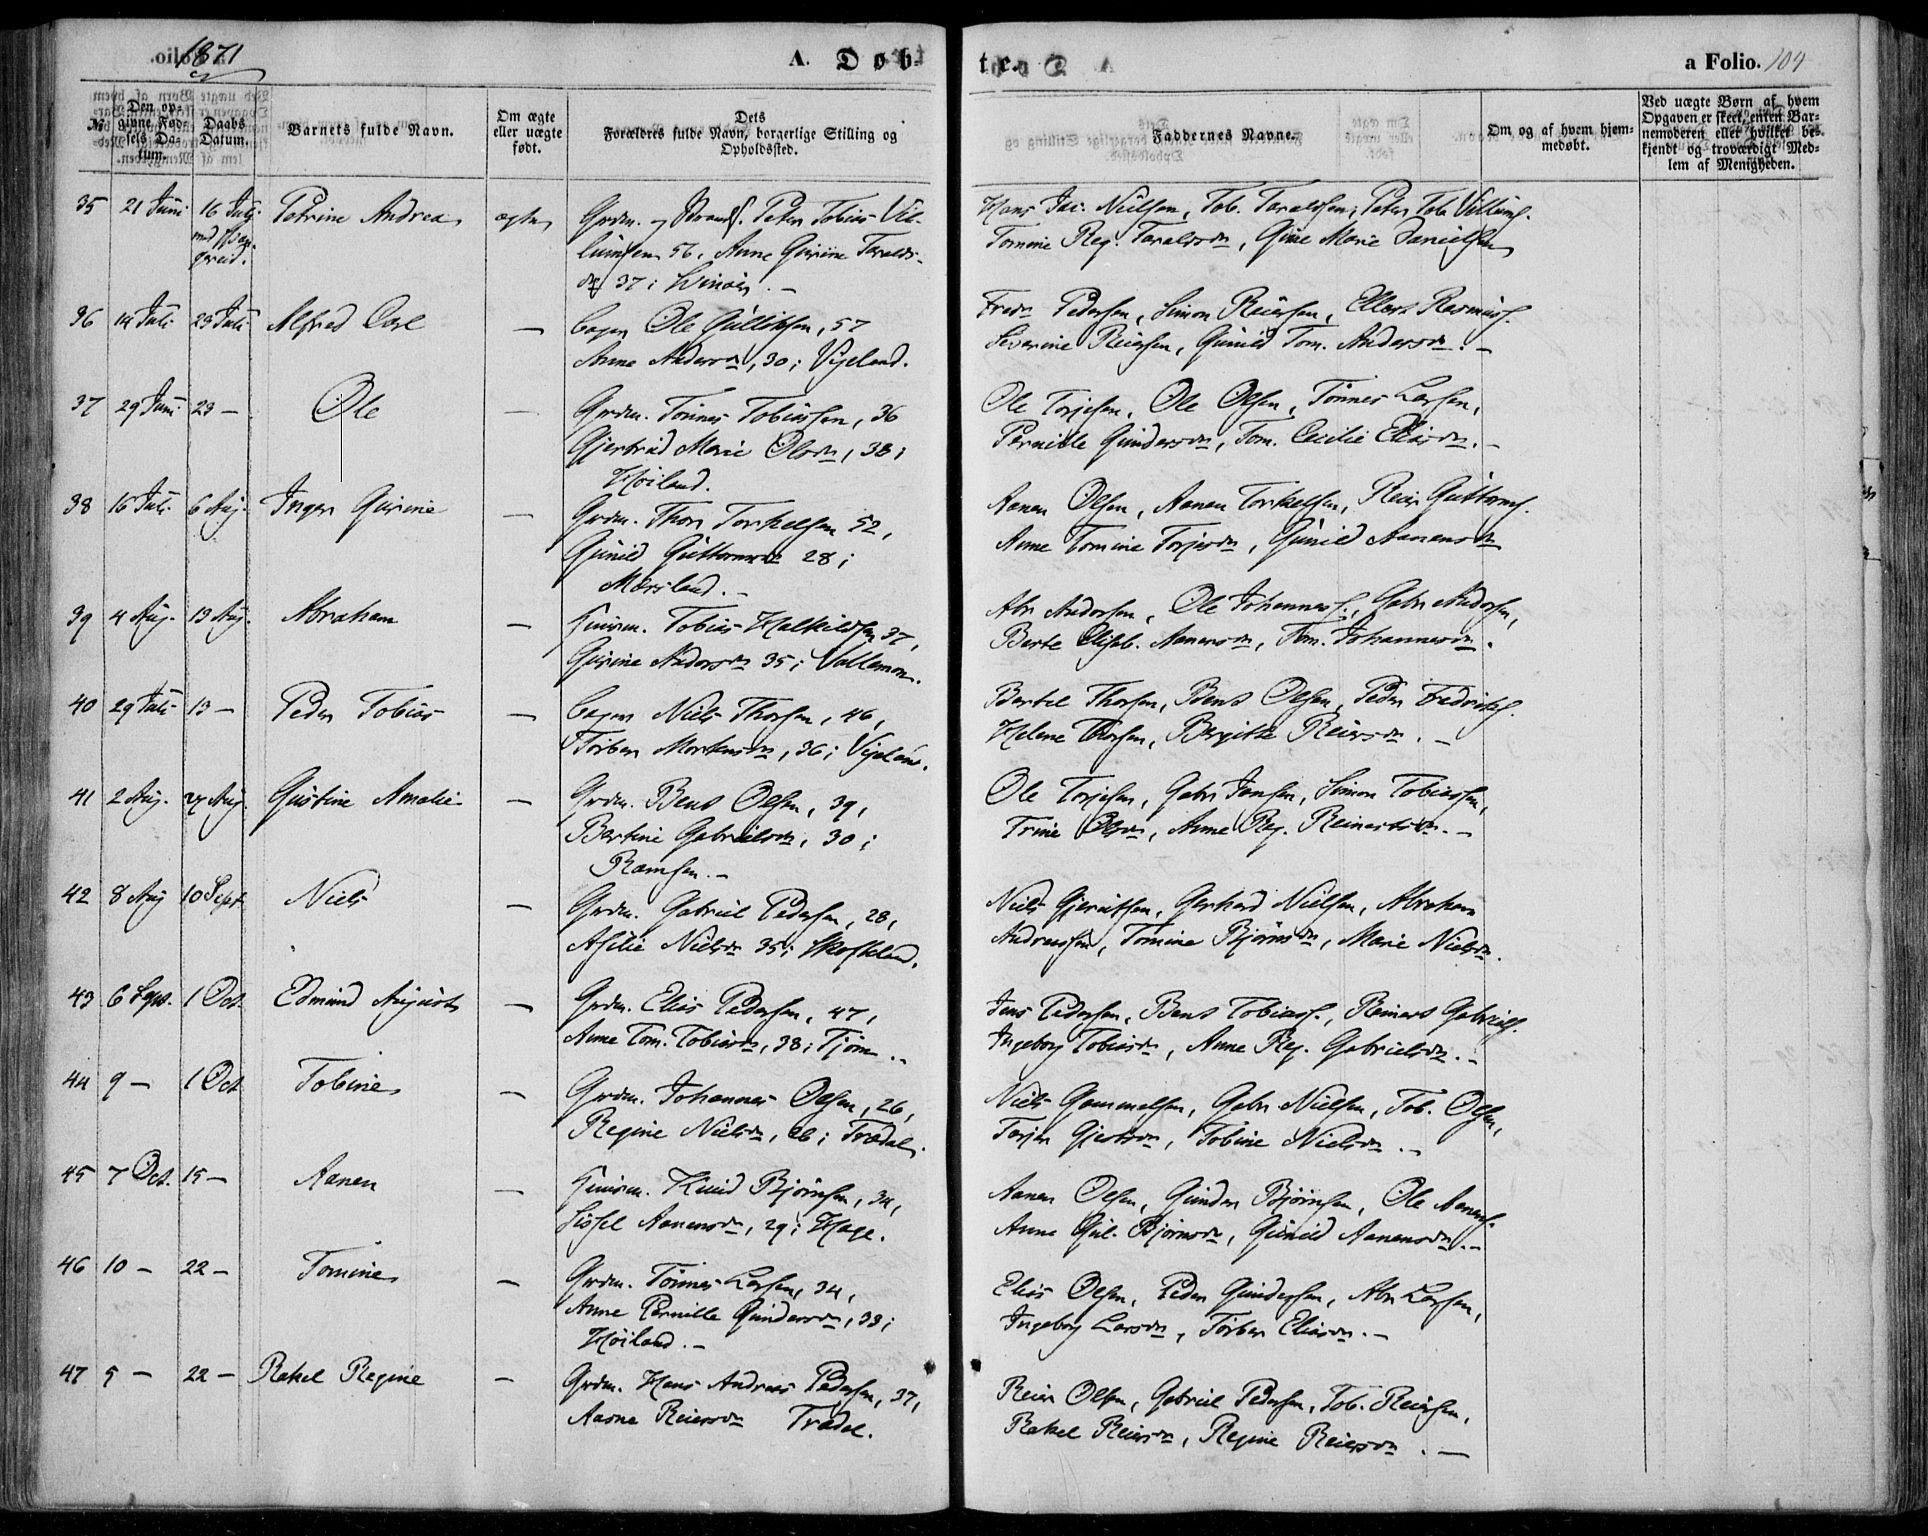 1871
A. Døb-
te.
a Folio. 104
№
Den op-
givne Fød-
sels Da-
tum.
Daabs
Datum.
Barnets fulde Navn.
Om ægte
eller uægte
født.
Dets
Forældres fulde Navn, borgerlige Stilling og
Opholdssted.
Faddernes Navne.
Om og af hvem hjem-
medøbt.
Ved uægte Børn af hvem
Opgaven er skeet, enten Bar-
nemoderen eller hvilket be-
kjendt og troværdigt Med-
lem af Menigheden.
35 21 Juni 16 Juli Petrine Andrea ægte Grdm. Peter Tobias Vil-
lumsen 56, Anne Gurine Taralds-
dr 37;
Hans Jac. Nielsen, Tob. Taraldsen, Peter Tob. Villums.
Tomine Reg. Taraldsdr, Gine Marie Danielsen
36 14 Juli 23 Juli Alfred Carl — Ole Gulliksen, 57
Anne Andersdr, 30; Vigeland.
Fredr Pedersen, Simon Reiersen, Ellert Rasmus.
Severine Reiersen, Gunild Tom. Andersdr. —
37 29 Juni 23 — Ole — Grdm. Tønnes Tobiassen, 36
Gjertrud Marie Olsdr, 38;
Høiland.
Ole Torjesen, Ole Olsen, Tønnes Larsen,
Pernille Gundersdr, Tom. Cecilie Eliasdr. —
38 16 Juli 6 Aug. Inger Gurine — Grdm. Thore Torkelsen 52,
Gunild Guttormsdr 28;
Mærsland. —
Aanen Olsen, Aanen Torkelsen, Reier Guttorms.
Anne Tomine Torjesdr, Gunild Aanensdr
39 4 Aug. 13 Aug. Abraham — Huusm. Tobias Halkildsen 37,
Gurine Andersdr 35; Vallemoen.
Abr Andersen, Ole Johannes., Gabr Andersen,
Berte Elisab. Aanensdr, Tom. Johannesdr.
40 29 Juli 13 — Peder Tobias — Niels Thorsen, 46,
Torber Mortensdr, 36; Vigeland.
Bertel Thorsen, Bent Olsen, Peder Fredriks.
Helene Thorsen, Birgitte Reiersdr. —
41 2 Aug. 27 Aug Gustine Amalie — Grdm. Bent Olsen, 39,
Bertine Gabrielsdr, 30;
Ramsen. —
Ole Torjesen, Gabr Jensen, Simon Tobiassen,
Trine Olsdr, Anne Reg. Reinertsdr. —
42 8 Aug 10 Sept. Niels — Grdm. Gabriel Pedersen, 28,
Asilie Nielsdr 35; Skofteland.
Niels Gjeruldsen, Gerhard Nielsen, Abraham
Andreassen, Tomine Bjørnsdr, Marie Nielsdr.
43 6 Sept. 1 Oct. Edmund August — Grdm. Elias Pedersen, 47,
Anne Tom. Tobiasdr, 38; Tjøm. —
Jens Pedersen, Bent Tobiass., Reinert Gabriels.
Ingeborg Tobiasdr, Anne Reg. Gabrielsdr. —
44 9 — 1 Oct Tobine — Grdm. Johannes Olsen, 26,
Regine Nielsdr, 26; Trædal.
Niels Gammelsen, Gabr Nielsen, Tob. Olsen,
Torjer Gjertsdr, Tobine Nielsdr. —
45 7 Oct. 15 — Aanen — Huusm. Bjørnsen, 34,
Sissel Aanensdr, 29; Hage.
Aanen Olsen, Gunder Bjørnsen, Ole Aanens.
Anne Gul. Bjørnsdr, Gunild Aanensdr. —
46 10 — 22 — Tomine — Grdm. Tønnes Larsen, 34,
Anne Pernille Gundersdr, 33;
Høiland. —
Elias Olsen, Peder Gundersen, Abr Larsen,
Ingeborg Larsdr, Torber Eliasdr. —
47 5 — 22 — Rakel Regine — Grdm. Hans Andreas Pedersen, 37,
Aasne Reiersdr Trædal.
Reier Olsen, Gabriel Pedersen, Tob. Reiersen,
Rakel Reiersdr, Regine Reiersdr. —